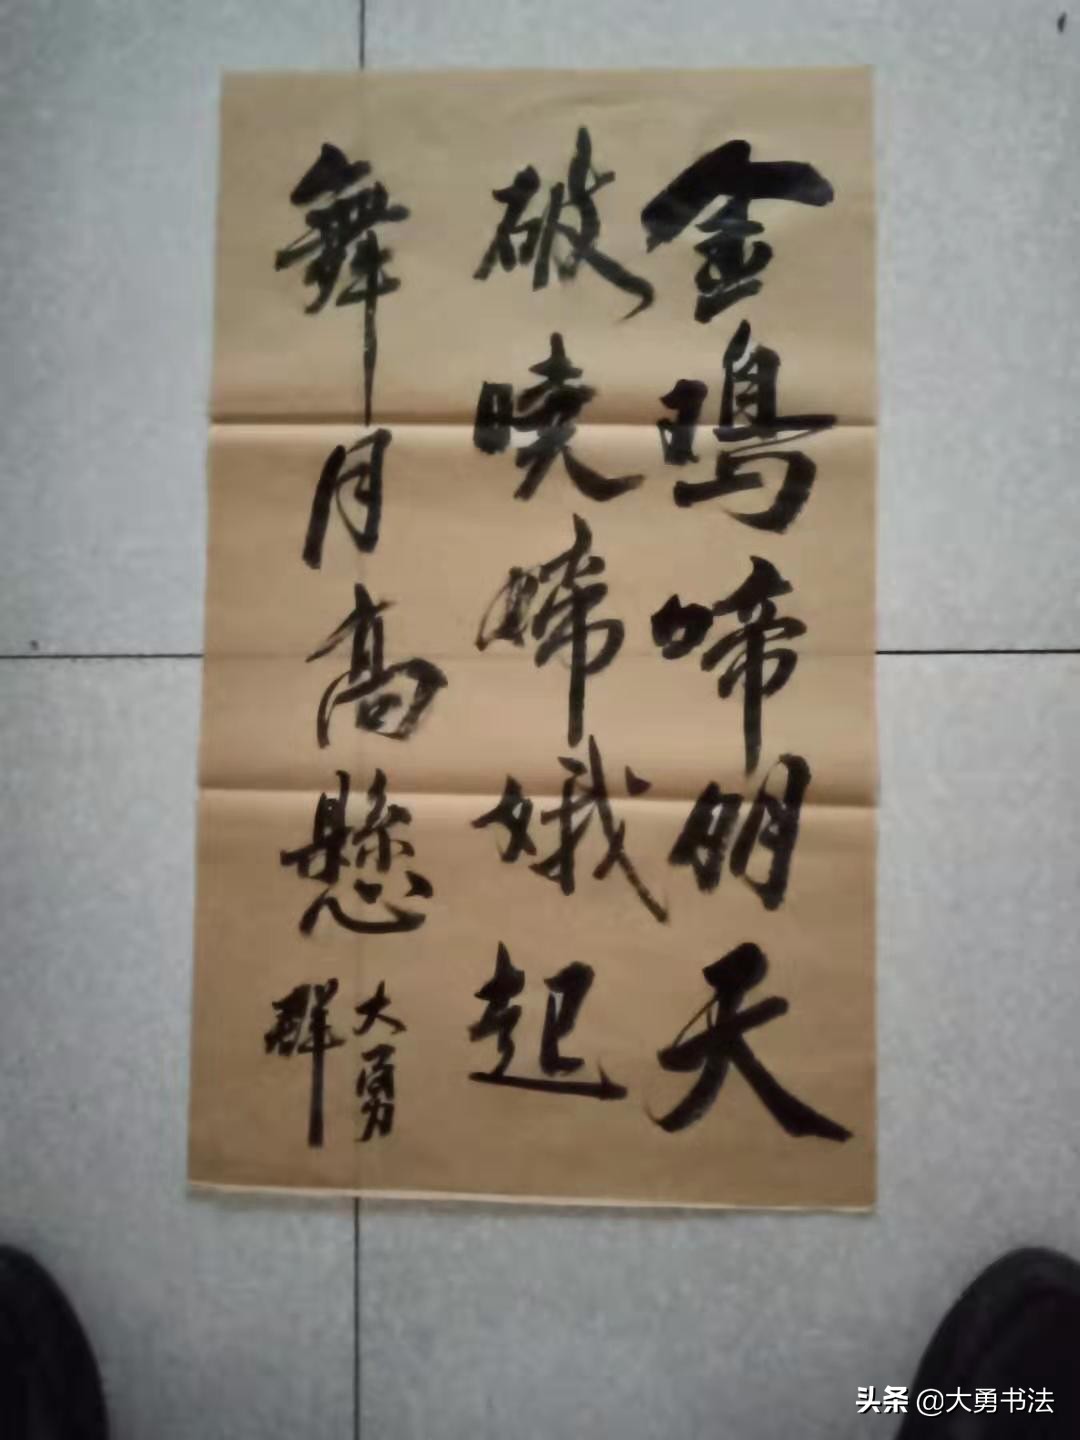 金鸡啼明天
破曉嫦娥起
舞月高懸
大勇
群
头条 @大勇书法